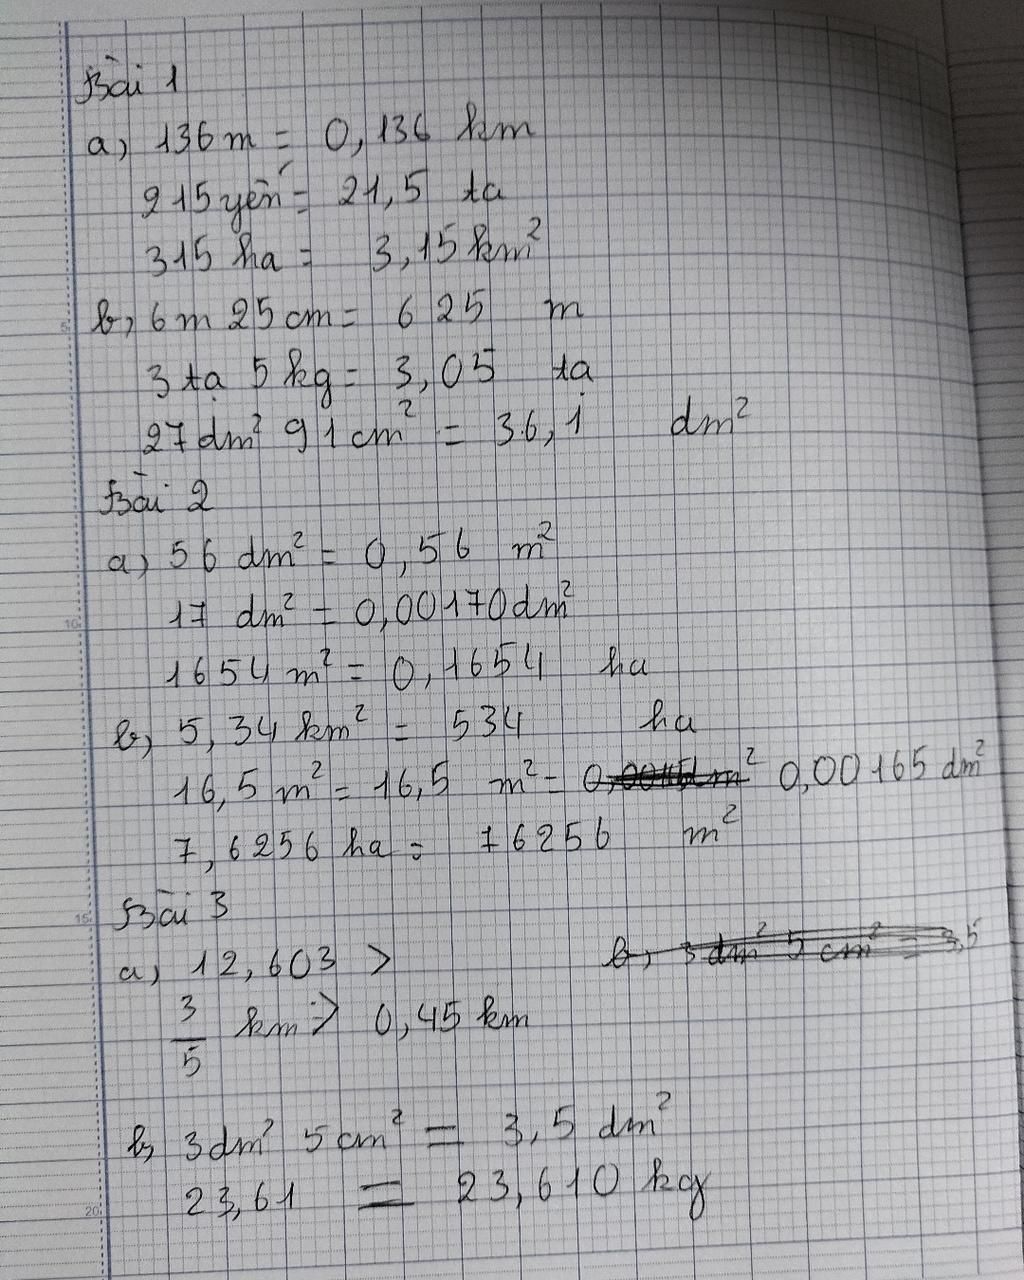 Bài 1
a) 136 m = 0,136 km
215 yến = 21,5 tạ
315 ha = 3,15 km²
b, 6 m 25 cm = 625 m
3 tạ 5 kg = 3,05 tạ
27 dm² 91 cm² = 36,1 dm²
Bài 2
a) 56 dm² = 0,56 m²
17 dm² = 0,00170 dm²
1654 m² = 0,1654 ha
b, 5,34 km² = 534 ha
16,5 m² = 16,5 m² = 0,00165 dm²
7,6256 ha = 76256 m²
Bài 3
a, 12,603 > b, 3 dm² 5 cm² = 3,5
3/5 km > 0,45 km
b, 3 dm² 5 cm² = 3,5 dm²
23,61 = 23,610 kg
5
10
15
20